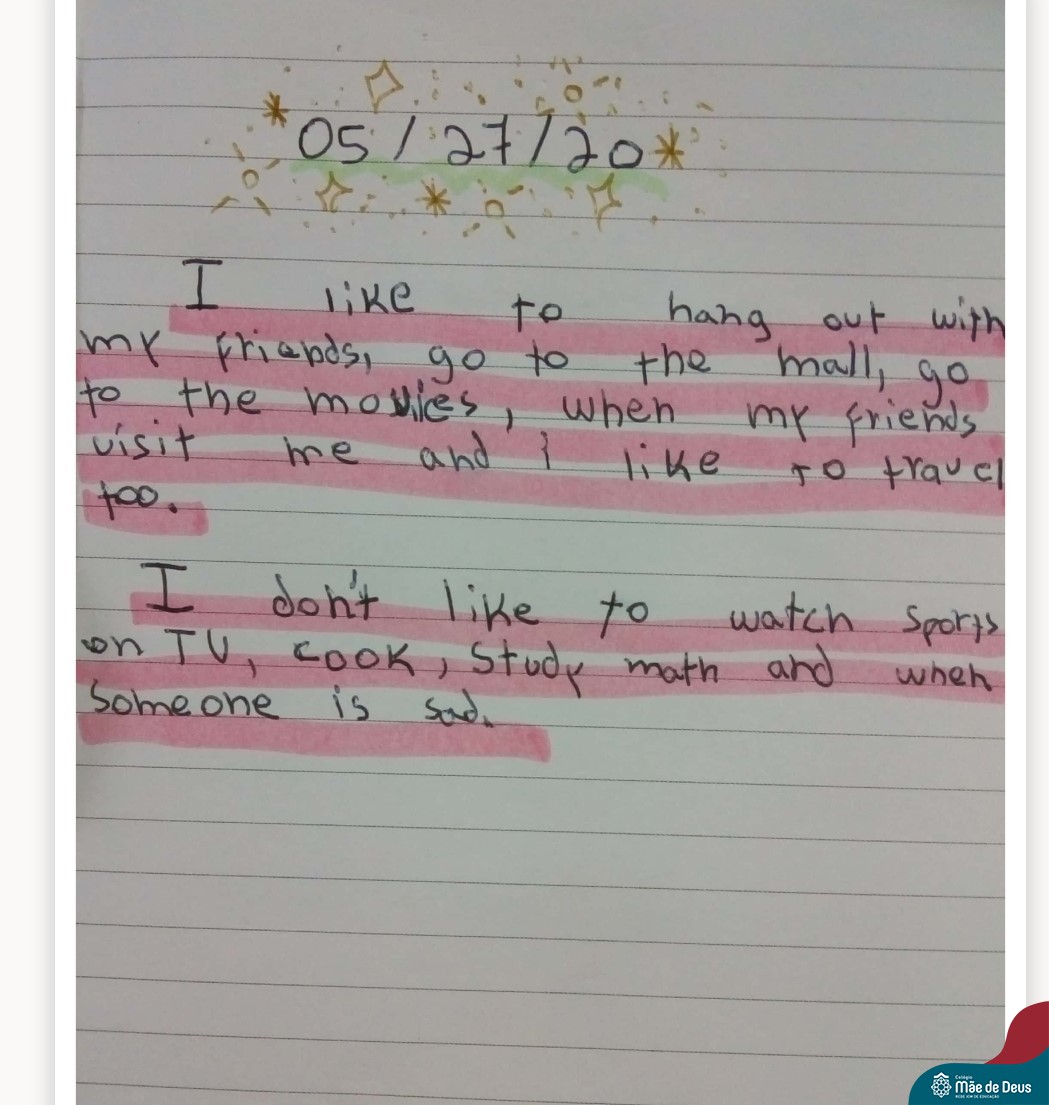 05/27/20
I like to hang out with
my friends, go to the mall, go
to the movies, when my friends
visit me and i like to travel
too.
I don't like to watch sports
on TV, cook, study math and when
someone is sad.
Colégio
Mãe de Deus
REDE ICM DE EDUCAÇÃO